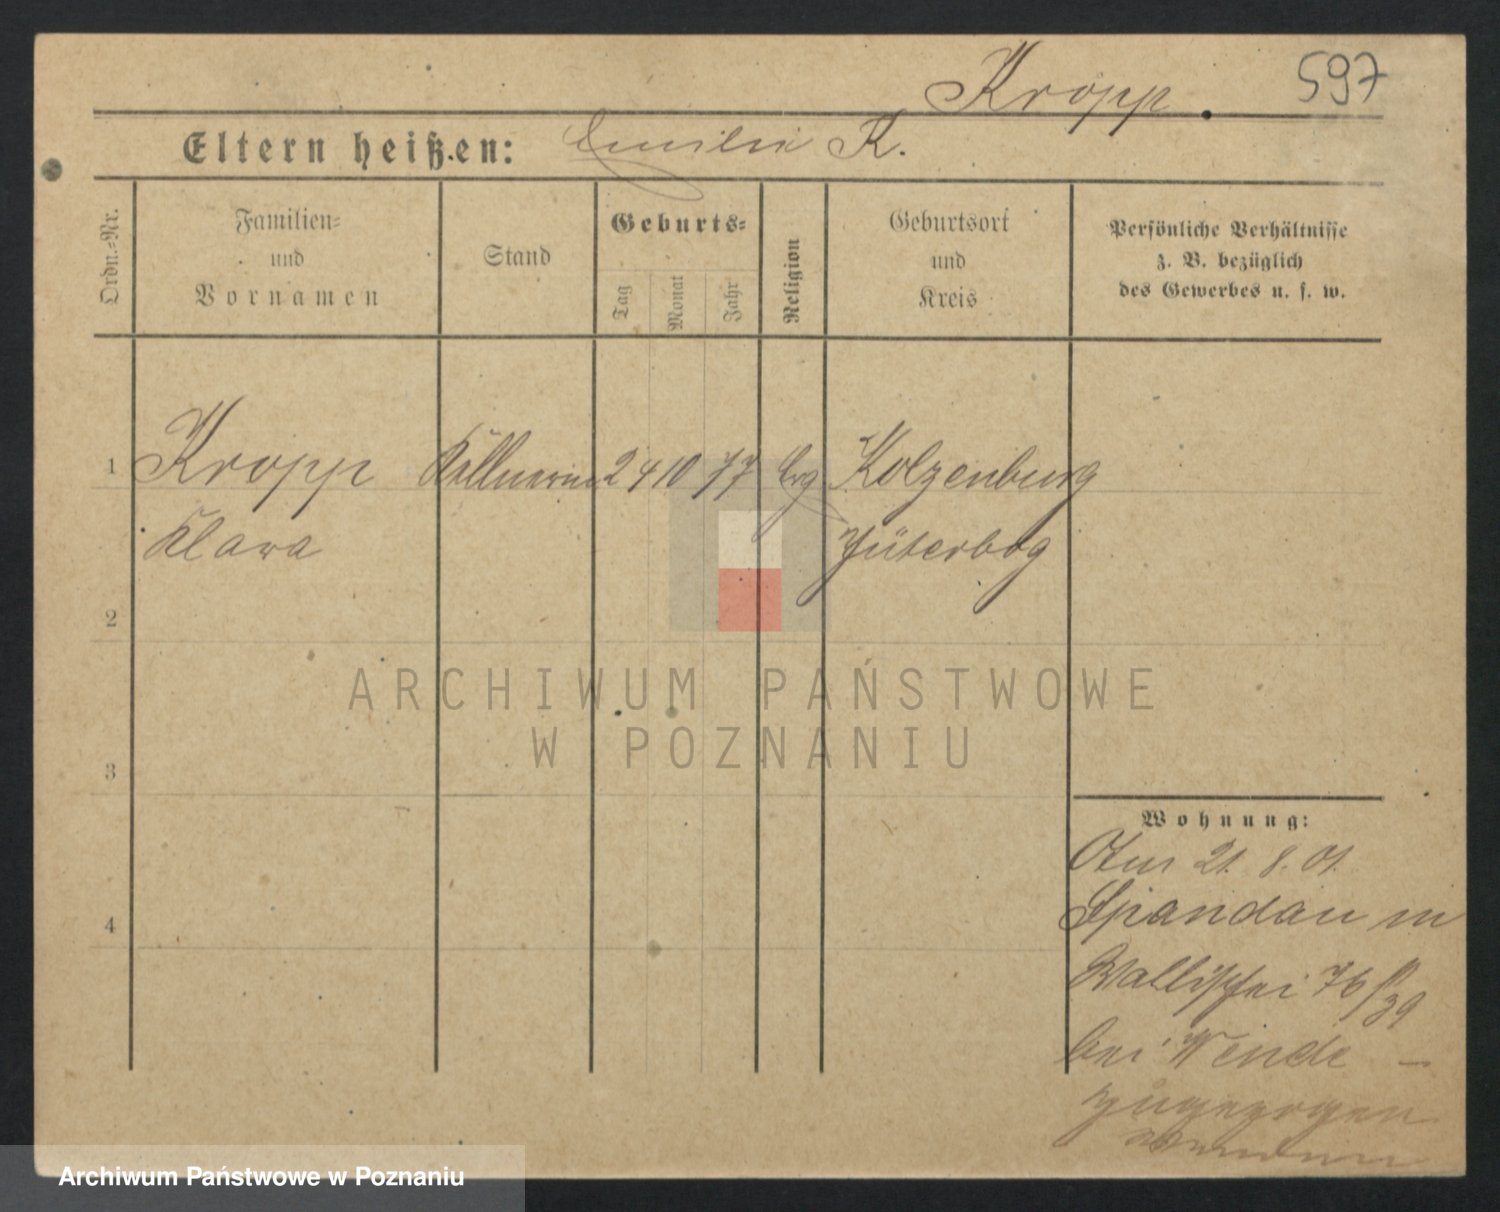 Kropp. 597
Eltern heißen: Emilie K.
Ordn.=Nr.
Familien=
und
Vornamen
Stand
Geburts=
Tag
Monat
Jahr
Religion
Geburtsort
und
Kreis
Persönliche Verhältnisse
z. B. bezüglich
des Gewerbes u. s. w.
1 Kropp Kellnerin 24 10 77 Evg Kolzenburg
Klara Jüterbog
2
3
4
ARCHIWUM PAŃSTWOWE
W POZNANIU
Wohnung:
21. 8. 01.
Spandau in
Wallischei 76/39
bei Wende –
zugezogen
Archiwum Państwowe w Poznaniu